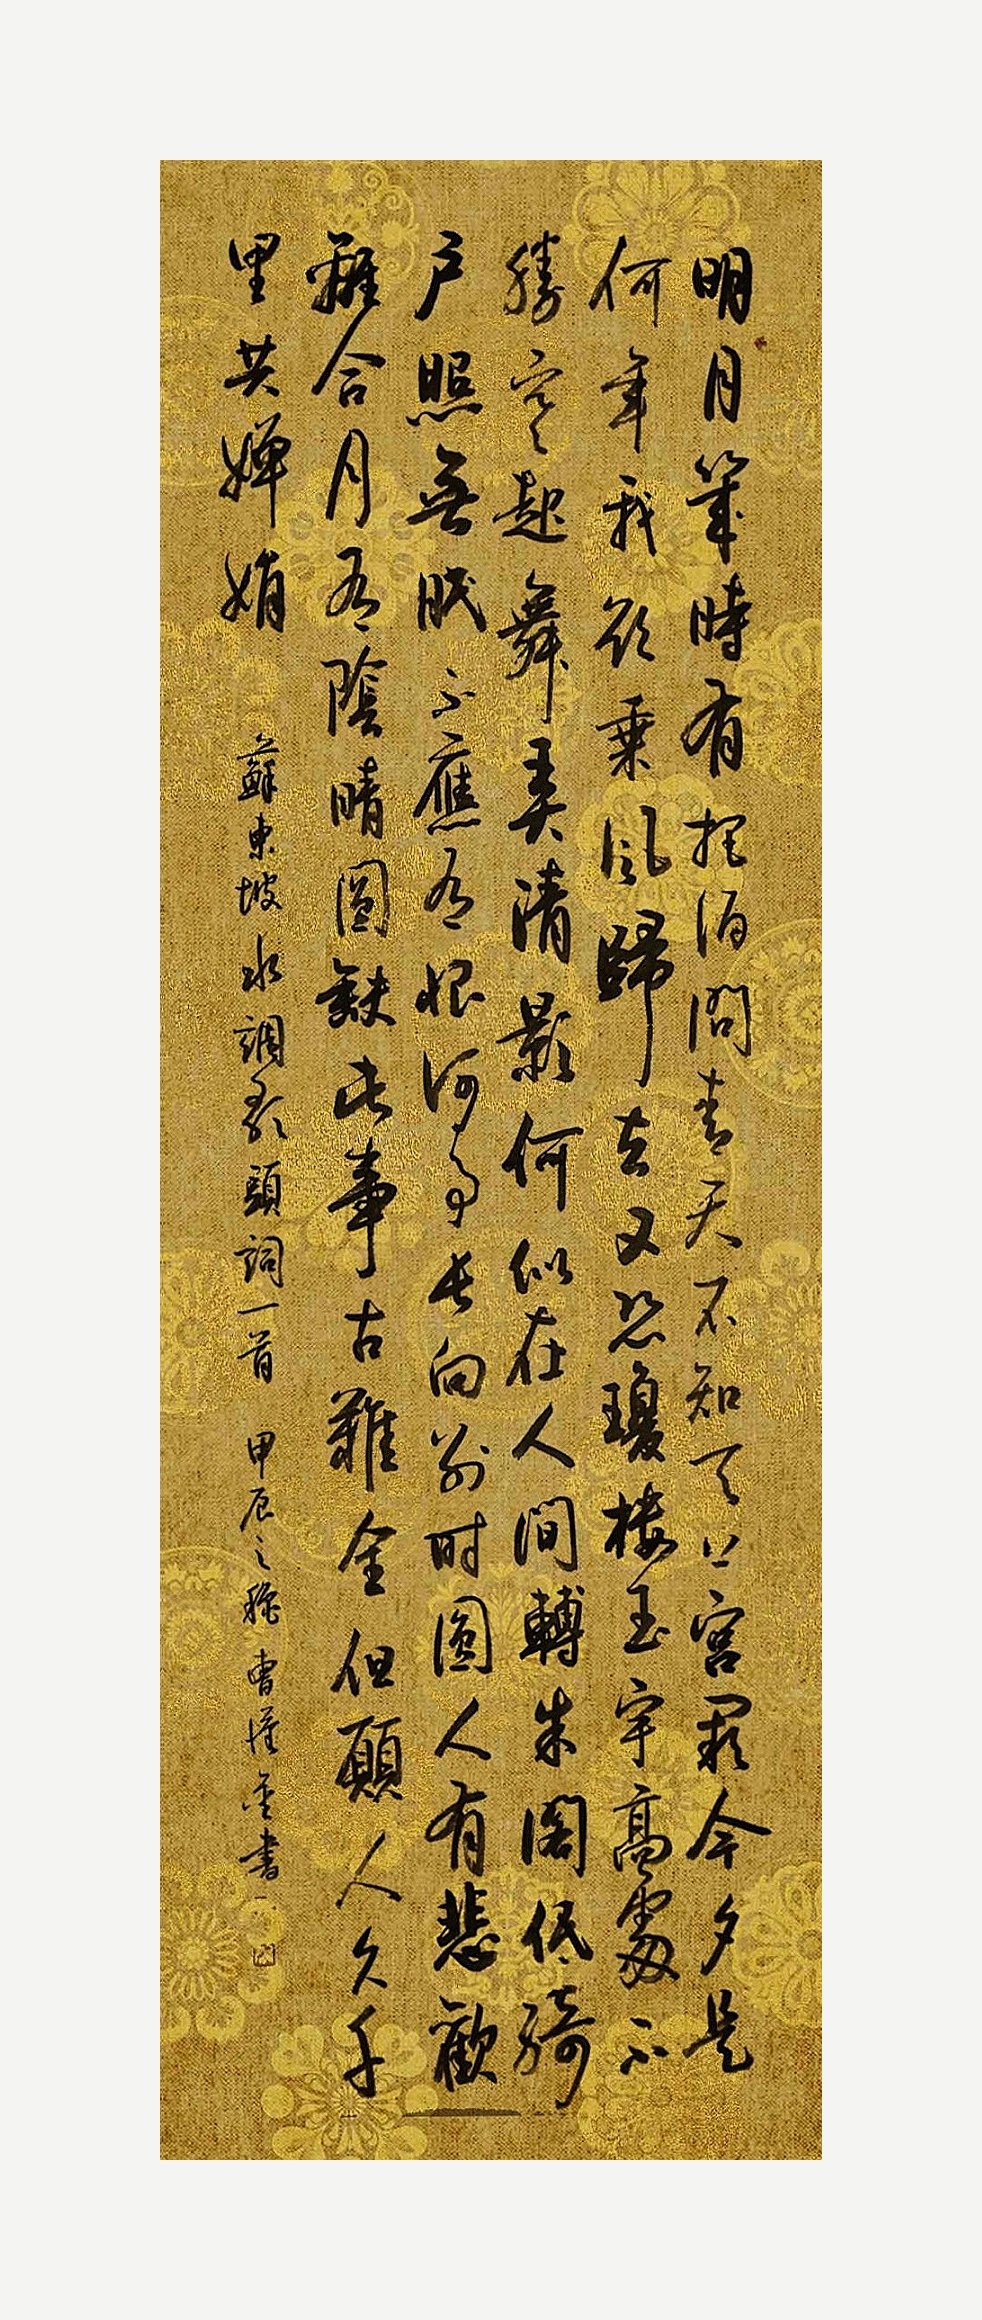 明月幾時有把酒問青天不知天上宮闕今夕是
何年我欲乘風歸去又恐瓊樓玉宇高處不
勝寒起舞弄清影何似在人間轉朱閣低綺
戶照無眠不應有恨何事長向別时圓人有悲歡
離合月有陰晴圓缺此事古難全但願人久千
里共嬋娟
蘇東坡水調歌頭詞一首 甲辰之穐 曹 書